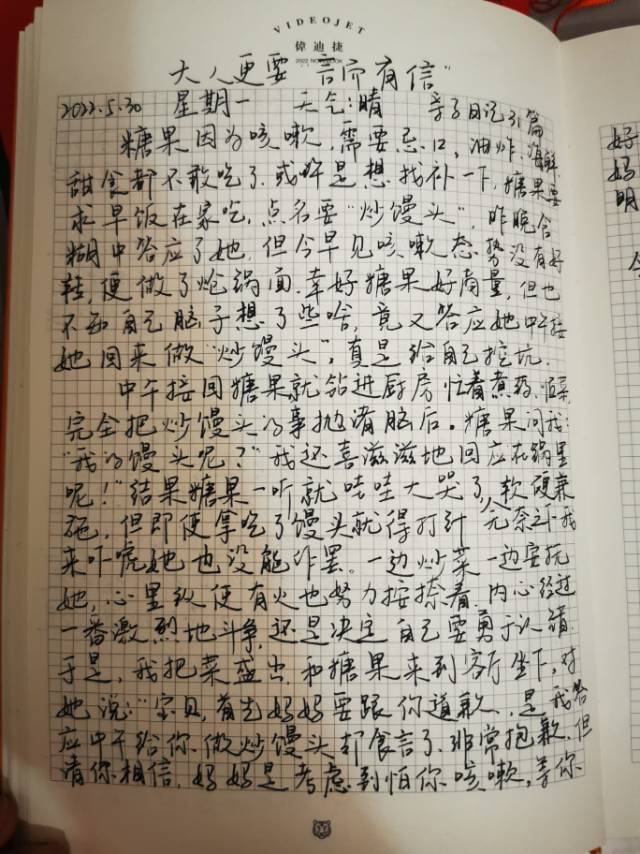 VIDEOJET
偉迪捷
2022 NOTEBOOK
大人更要“言而有信”
2022.5.30 星期一 天气:晴 亲子日记31篇
糖果因为咳嗽,需要忌口,油炸,海鲜
甜食都不敢吃了,或许是想找补一下,糖果要
求早饭在家吃,点名要“炒馒头”,昨晚含
糊中答应了她,但今早见咳嗽态势没有好
转,便做了炝锅面,幸好糖果好商量,但也
不知自己脑子想了些啥,竟又答应她中午接
她回来做“炒馒头”,真是给自己挖坑.
中午接回糖果就钻进厨房忙着煮药、
完全把炒馒头的事抛诸脑后。糖果问我:
“我的馒头呢?”我还喜滋滋地回应在锅里
呢!”结果糖果一听就哇哇大哭了,软硬兼
施,但即使拿吃了馒头就得打针 无奈之下我
来吓唬她也没能作罢。一边炒菜一边安抚
她,心里纵使有火也努力按捺着,内心经过
一番激烈地斗争,还是决定自己要勇于认错
于是,我把菜盛出,和糖果来到客厅坐下,对
她说:“宝贝,首先妈妈要跟你道歉,是我答
应中午给你做炒馒头却食言了,非常抱歉,但
请你相信,妈妈是考虑到怕你咳嗽,等你
好
妈
明